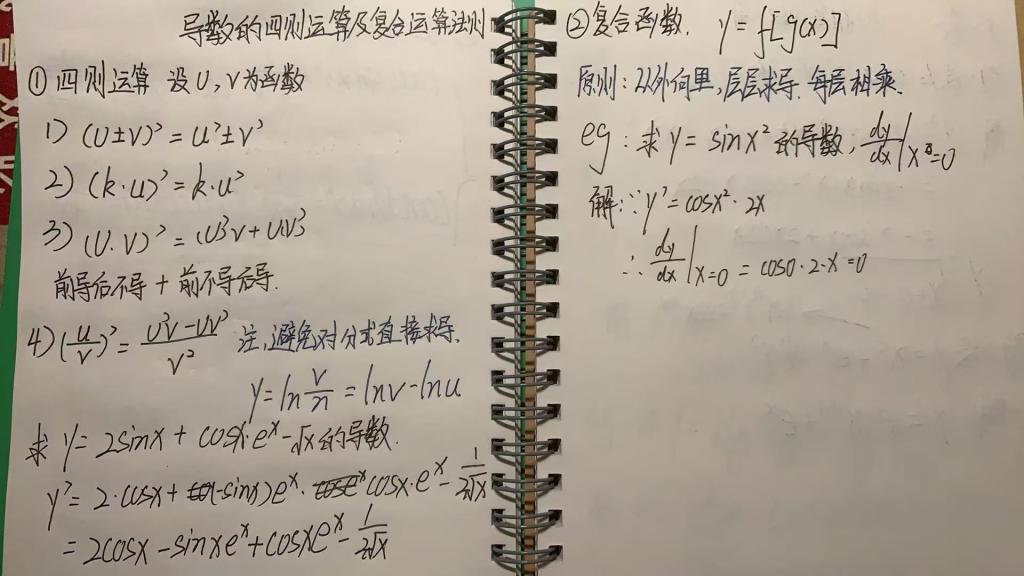 导数的四则运算及复合运算法则
① 四则运算 设U,V为函数
1) (U±V)'=U'±V'
2) (k·u)'=k·u'
3) (U·V)'=U'V+UV'
前导后不得+前不导后导.
4) (u/v)'=(U'V-UV')/V² 注,避免对分式直接求导.
y=ln v/n=lnv-lnu
求 y=2sinx+cosx·eˣ-√x的导数.
y'=2·cosx+(-sinx)eˣ·cosx·eˣ-1/2√x
=2cosx-sinxeˣ+cosxeˣ-1/2√x
②复合函数. y=f[g(x)]
原则:从外向里,层层求导.每层相乘.
eg:求y=sinx²的导数,dy/dx|x=0
解:∵y'=cosx²·2x
∴dy/dx|x=0=cos0·2·x=0